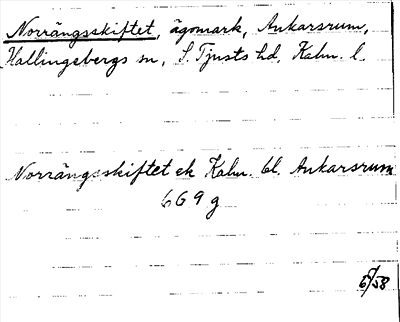 Norrängsskiftet, ägomark, Ankarsrum,
Hallingebergs sn, S. Tjusts hd, Kalm. l.
Norrängsskiftet ek Kalm. bl. Ankarsrum
669 g
5/58